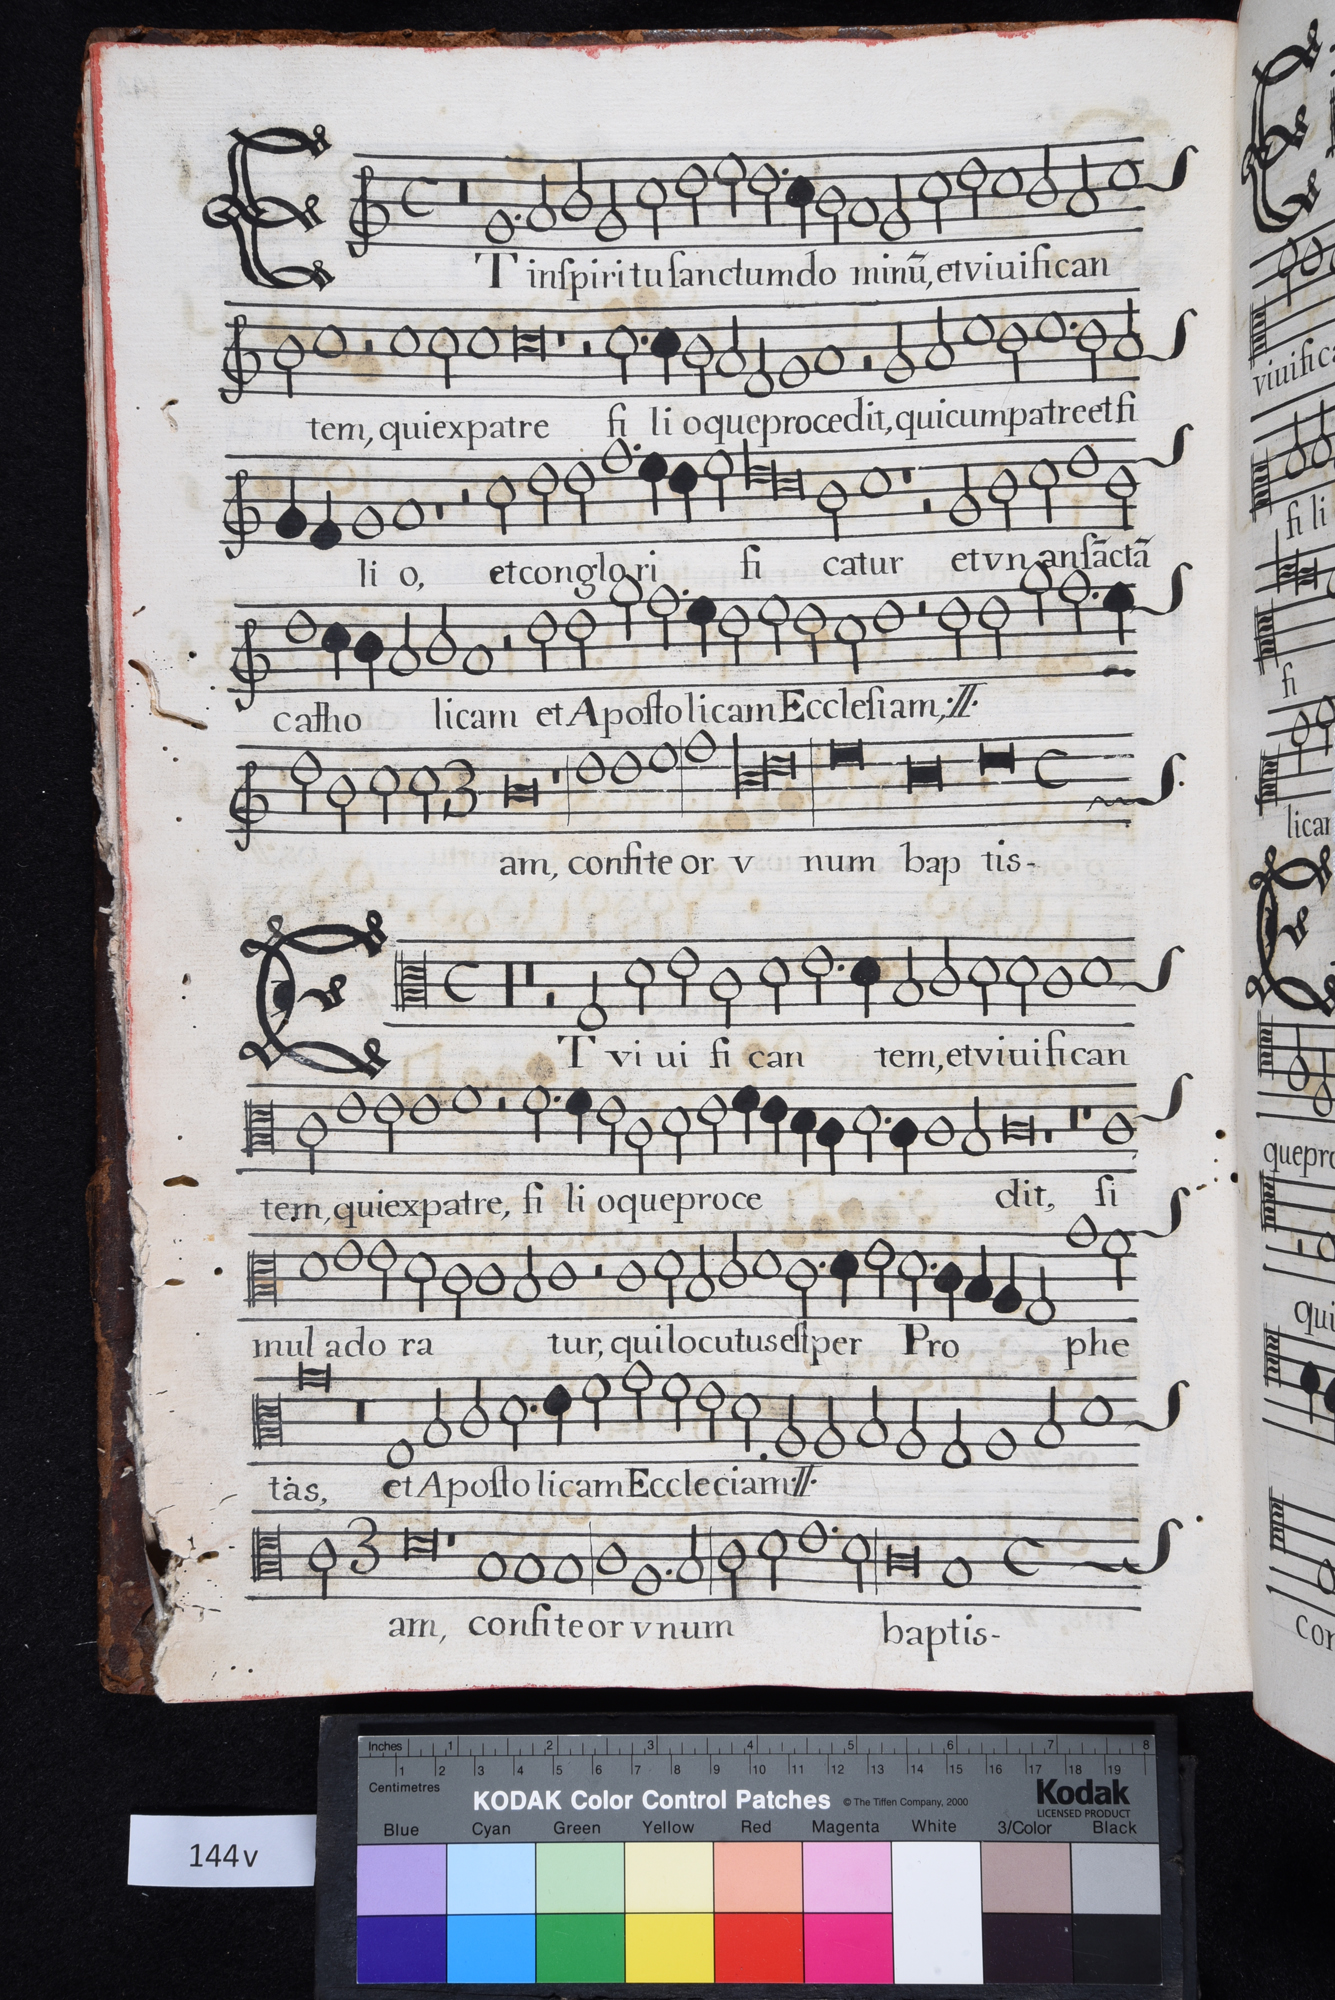 ET inspiritu sanctum do minũ, et viuifican
tem, qui ex patre fi li oque procedit, qui cum patre et fi
li o, et conglo ri fi catur et vn am sãctã
catho licam et Apostolicam Ecclesiam, :||:
am, confite or v num bap tis-
ET vi ui fi can tem, et viuifican
tem, qui ex patre, fi li oque proce dit, si
mul ado ra tur, qui locutus est per Pro phe
tas, et Apostolicam Eccleciam :||:
am, confiteor vnum baptis-
viuifica
fi li
fi
lican
quepro
qui
con
Inches 1 2 3 4 5 6 7 8
Centimetres 1 2 3 4 5 6 7 8 9 10 11 12 13 14 15 16 17 18 19
KODAK Color Control Patches © The Tiffen Company, 2000 Kodak
LICENSED PRODUCT
Blue Cyan Green Yellow Red Magenta White 3/Color Black
144v